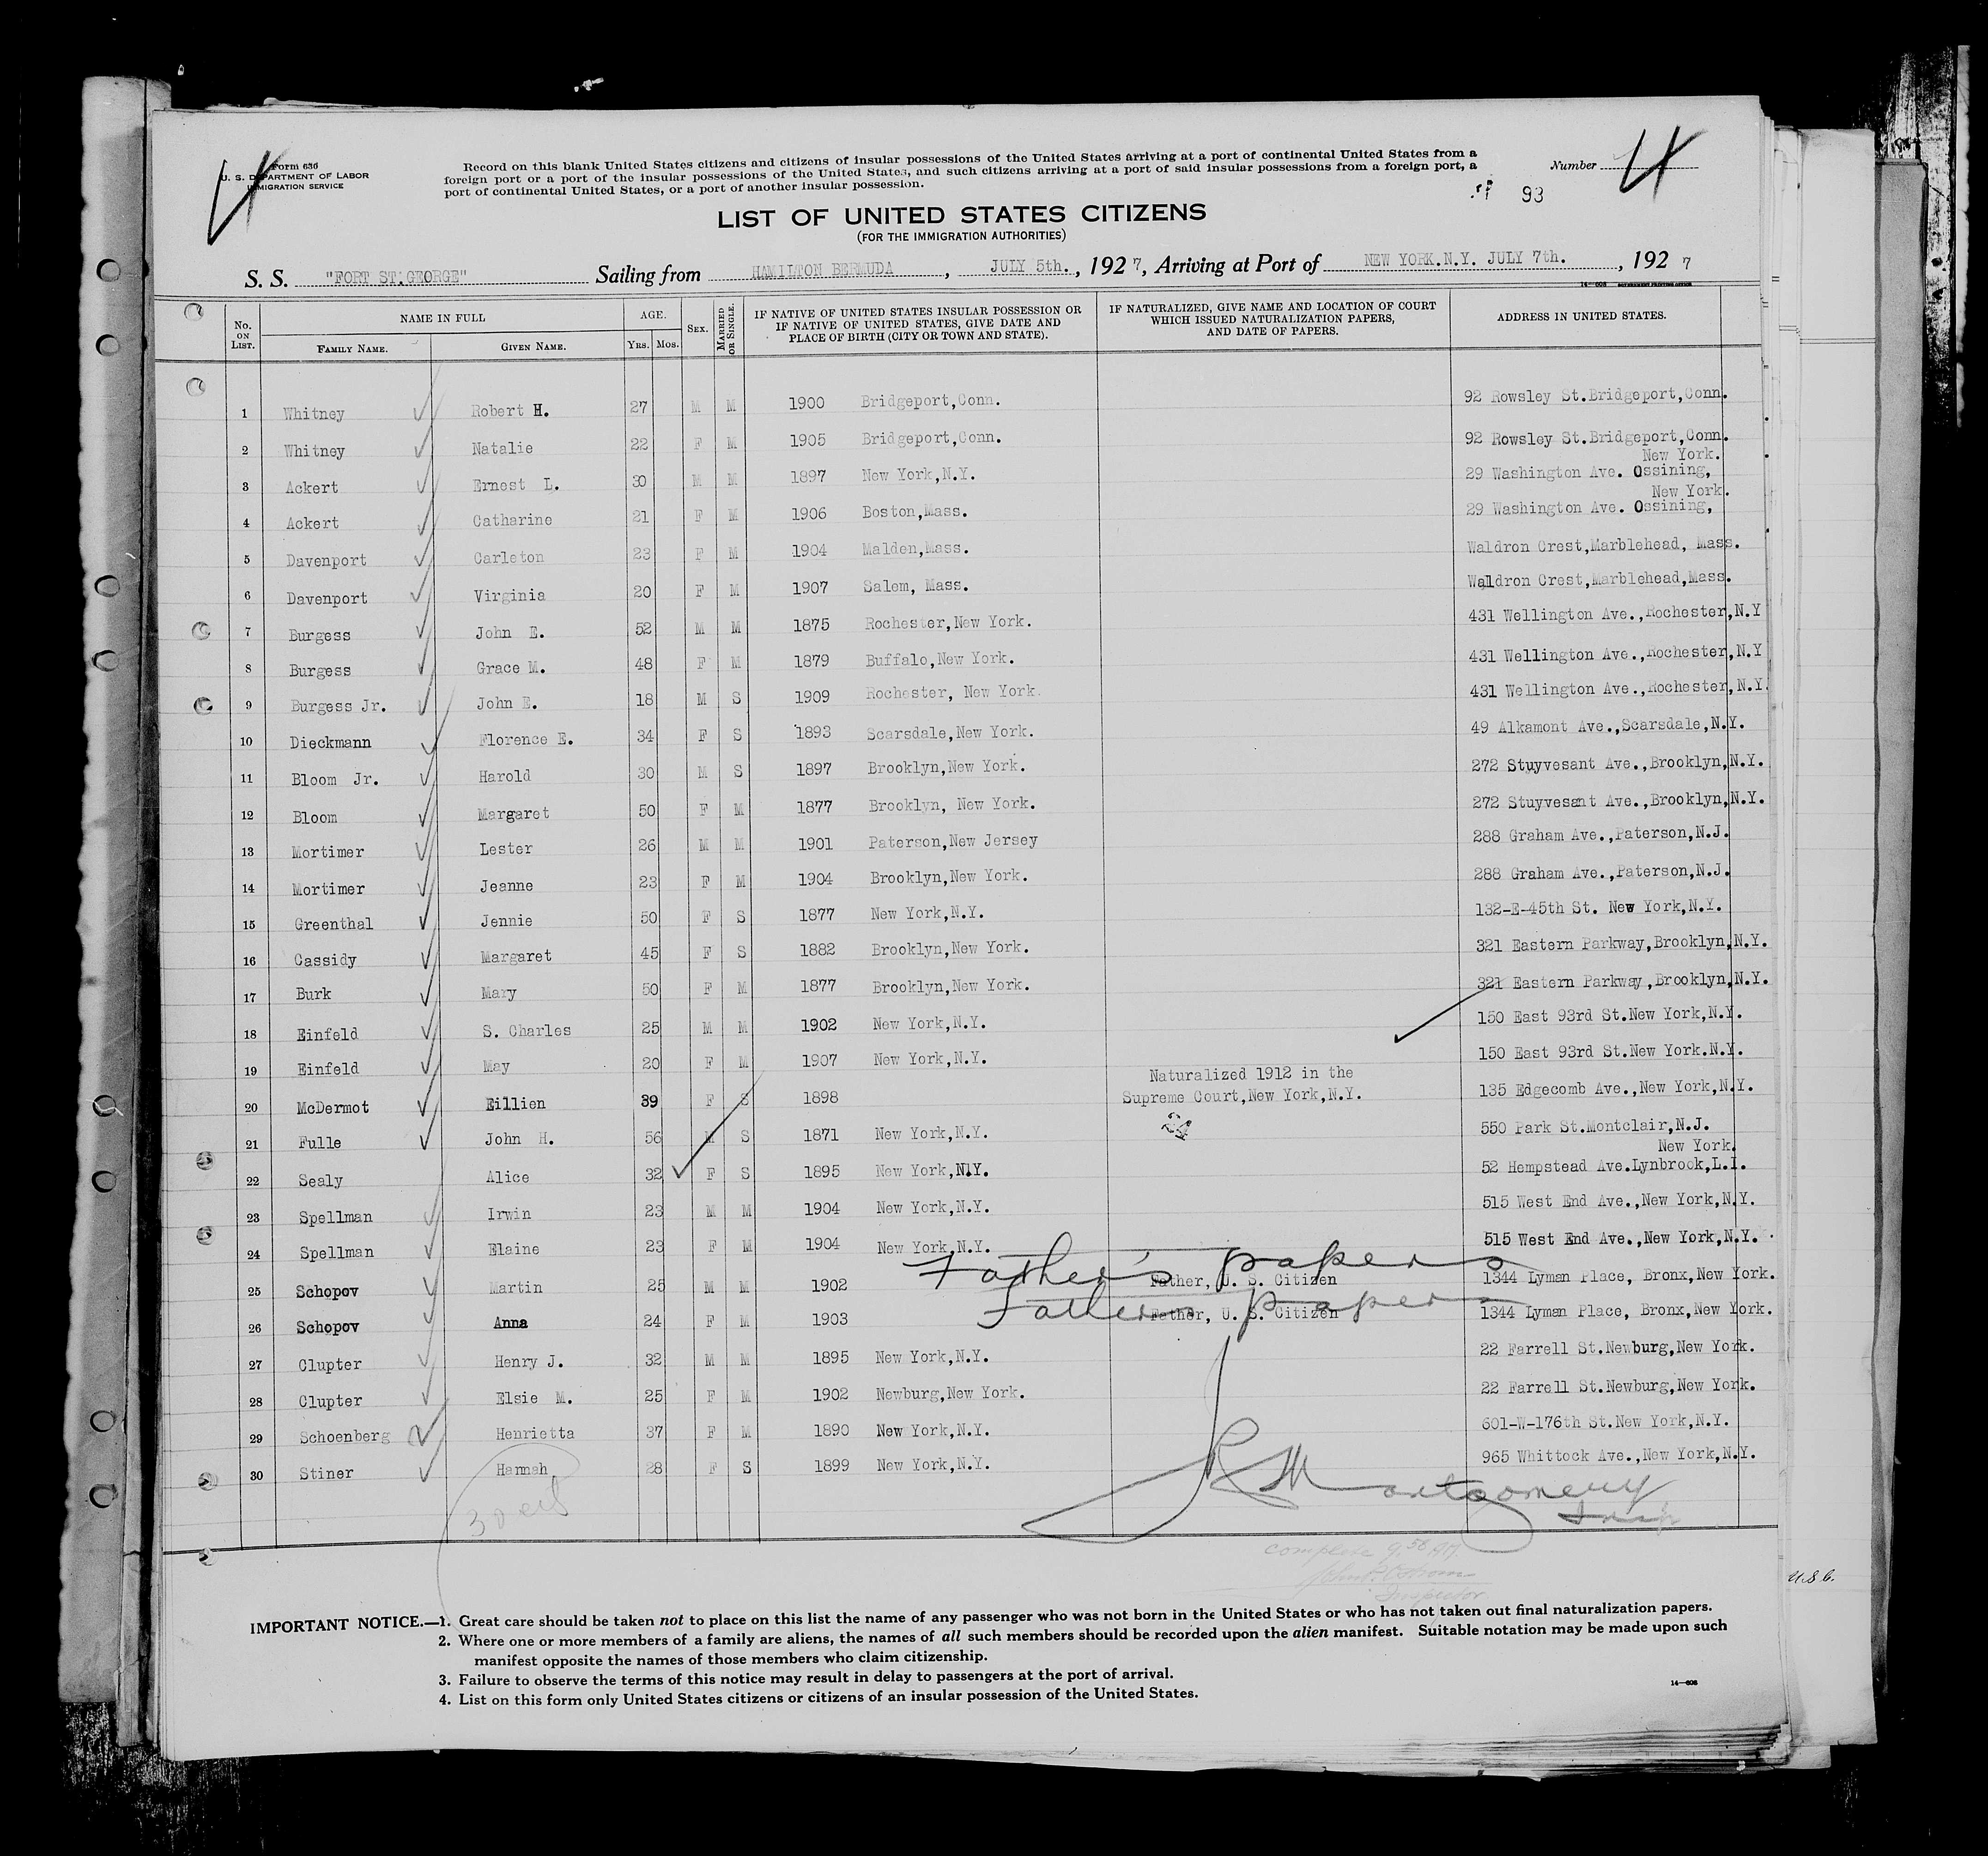 Form 636
U. S. DEPARTMENT OF LABOR
IMMIGRATION SERVICE
Record on this blank United States citizens and citizens of insular possessions of the United States arriving at a port of continental United States from a
foreign port or a port of the insular possessions of the United States, and such citizens arriving at a port of said insular possessions from a foreign port, a
port of continental United States, or a port of another insular possession.
Number 4
93
LIST OF UNITED STATES CITIZENS
(FOR THE IMMIGRATION AUTHORITIES)
S. S. "FORT ST.GEORGE" Sailing from HAMILTON BERMUDA, JULY 5th., 1927, Arriving at Port of NEW YORK.N.Y. JULY 7th., 1927
14—608 GOVERNMENT PRINTING OFFICE
No. ON LIST. NAME IN FULL AGE. SEX. MARRIED OR SINGLE. IF NATIVE OF UNITED STATES INSULAR POSSESSION OR IF NATIVE OF UNITED STATES, GIVE DATE AND PLACE OF BIRTH (CITY OR TOWN AND STATE). IF NATURALIZED, GIVE NAME AND LOCATION OF COURT WHICH ISSUED NATURALIZATION PAPERS, AND DATE OF PAPERS. ADDRESS IN UNITED STATES.
FAMILY NAME. GIVEN NAME. YRS. MOS.
1 Whitney Robert H. 27 M M 1900 Bridgeport,Conn. 92 Rowsley St.Bridgeport,Conn.
2 Whitney Natalie 22 F M 1905 Bridgeport,Conn. 92 Rowsley St.Bridgeport,Conn.
New York.
3 Ackert Ernest L. 30 M M 1897 New York,N.Y. 29 Washington Ave. Ossining,
New York.
4 Ackert Catharine 21 F M 1906 Boston,Mass. 29 Washington Ave. Ossining,
5 Davenport Carleton 23 F M 1904 Malden,Mass. Waldron Crest,Marblehead, Mass.
6 Davenport Virginia 20 F M 1907 Salem, Mass. Waldron Crest,Marblehead,Mass.
7 Burgess John E. 52 M M 1875 Rochester,New York. 431 Wellington Ave.,Rochester,N.Y
8 Burgess Grace M. 48 F M 1879 Buffalo,New York. 431 Wellington Ave.,Rochester,N.Y
9 Burgess Jr. John E. 18 M S 1909 Rochester, New York. 431 Wellington Ave.,Rochester,N.Y.
10 Dieckmann Florence E. 34 F S 1893 Scarsdale,New York. 49 Alkamont Ave.,Scarsdale,N.Y.
11 Bloom Jr. Harold 30 M S 1897 Brooklyn,New York. 272 Stuyvesant Ave.,Brooklyn,N.Y.
12 Bloom Margaret 50 F M 1877 Brooklyn, New York. 272 Stuyvesant Ave.,Brooklyn,N.Y.
13 Mortimer Lester 26 M M 1901 Paterson,New Jersey 288 Graham Ave.,Paterson,N.J.
14 Mortimer Jeanne 23 F M 1904 Brooklyn,New York. 288 Graham Ave.,Paterson,N.J.
15 Greenthal Jennie 50 F S 1877 New York,N.Y. 132-E-45th St. New York,N.Y.
16 Cassidy Margaret 45 F S 1882 Brooklyn,New York. 321 Eastern Parkway,Brooklyn,N.Y.
17 Burk Mary 50 F M 1877 Brooklyn,New York. 321 Eastern Parkway,Brooklyn,N.Y.
18 Einfeld S. Charles 25 M M 1902 New York,N.Y. 150 East 93rd St.New York,N.Y.
19 Einfeld May 20 F M 1907 New York,N.Y. 150 East 93rd St.New York.N.Y.
Naturalized 1912 in the
20 McDermot Eillien 39 F S 1898 Supreme Court,New York,N.Y. 135 Edgecomb Ave.,New York,N.Y.
21 Fulle John H. 56 M S 1871 New York,N.Y. 550 Park St.Montclair,N.J.
New York.
22 Sealy Alice 32 F S 1895 New York,N.Y. 52 Hempstead Ave.Lynbrook,L.I.
23 Spellman Irwin 23 M M 1904 New York,N.Y. 515 West End Ave.,New York,N.Y.
24 Spellman Elaine 23 F M 1904 New York,N.Y. 515 West End Ave.,New York,N.Y.
Father's papers
25 Schopov Martin 25 M M 1902 Father, U. S. Citizen 1344 Lyman Place, Bronx,New York.
Father's papers
26 Schopov Anna 24 F M 1903 Father, U. S. Citizen 1344 Lyman Place, Bronx,New York.
27 Clupter Henry J. 32 M M 1895 New York,N.Y. 22 Farrell St.Newburg,New York.
28 Clupter Elsie M. 25 F M 1902 Newburg,New York. 22 Farrell St.Newburg,New York.
29 Schoenberg Henrietta 37 F M 1890 New York,N.Y. 601-W-176th St.New York,N.Y.
30 Stiner Hannah 28 F S 1899 New York,N.Y. 965 Whittock Ave.,New York,N.Y.
Montgomery
Insp
complete 9.50 AM.
Inspector
U.S.C.
IMPORTANT NOTICE.—1. Great care should be taken not to place on this list the name of any passenger who was not born in the United States or who has not taken out final naturalization papers.
2. Where one or more members of a family are aliens, the names of all such members should be recorded upon the alien manifest. Suitable notation may be made upon such
manifest opposite the names of those members who claim citizenship.
3. Failure to observe the terms of this notice may result in delay to passengers at the port of arrival.
4. List on this form only United States citizens or citizens of an insular possession of the United States.
14—608